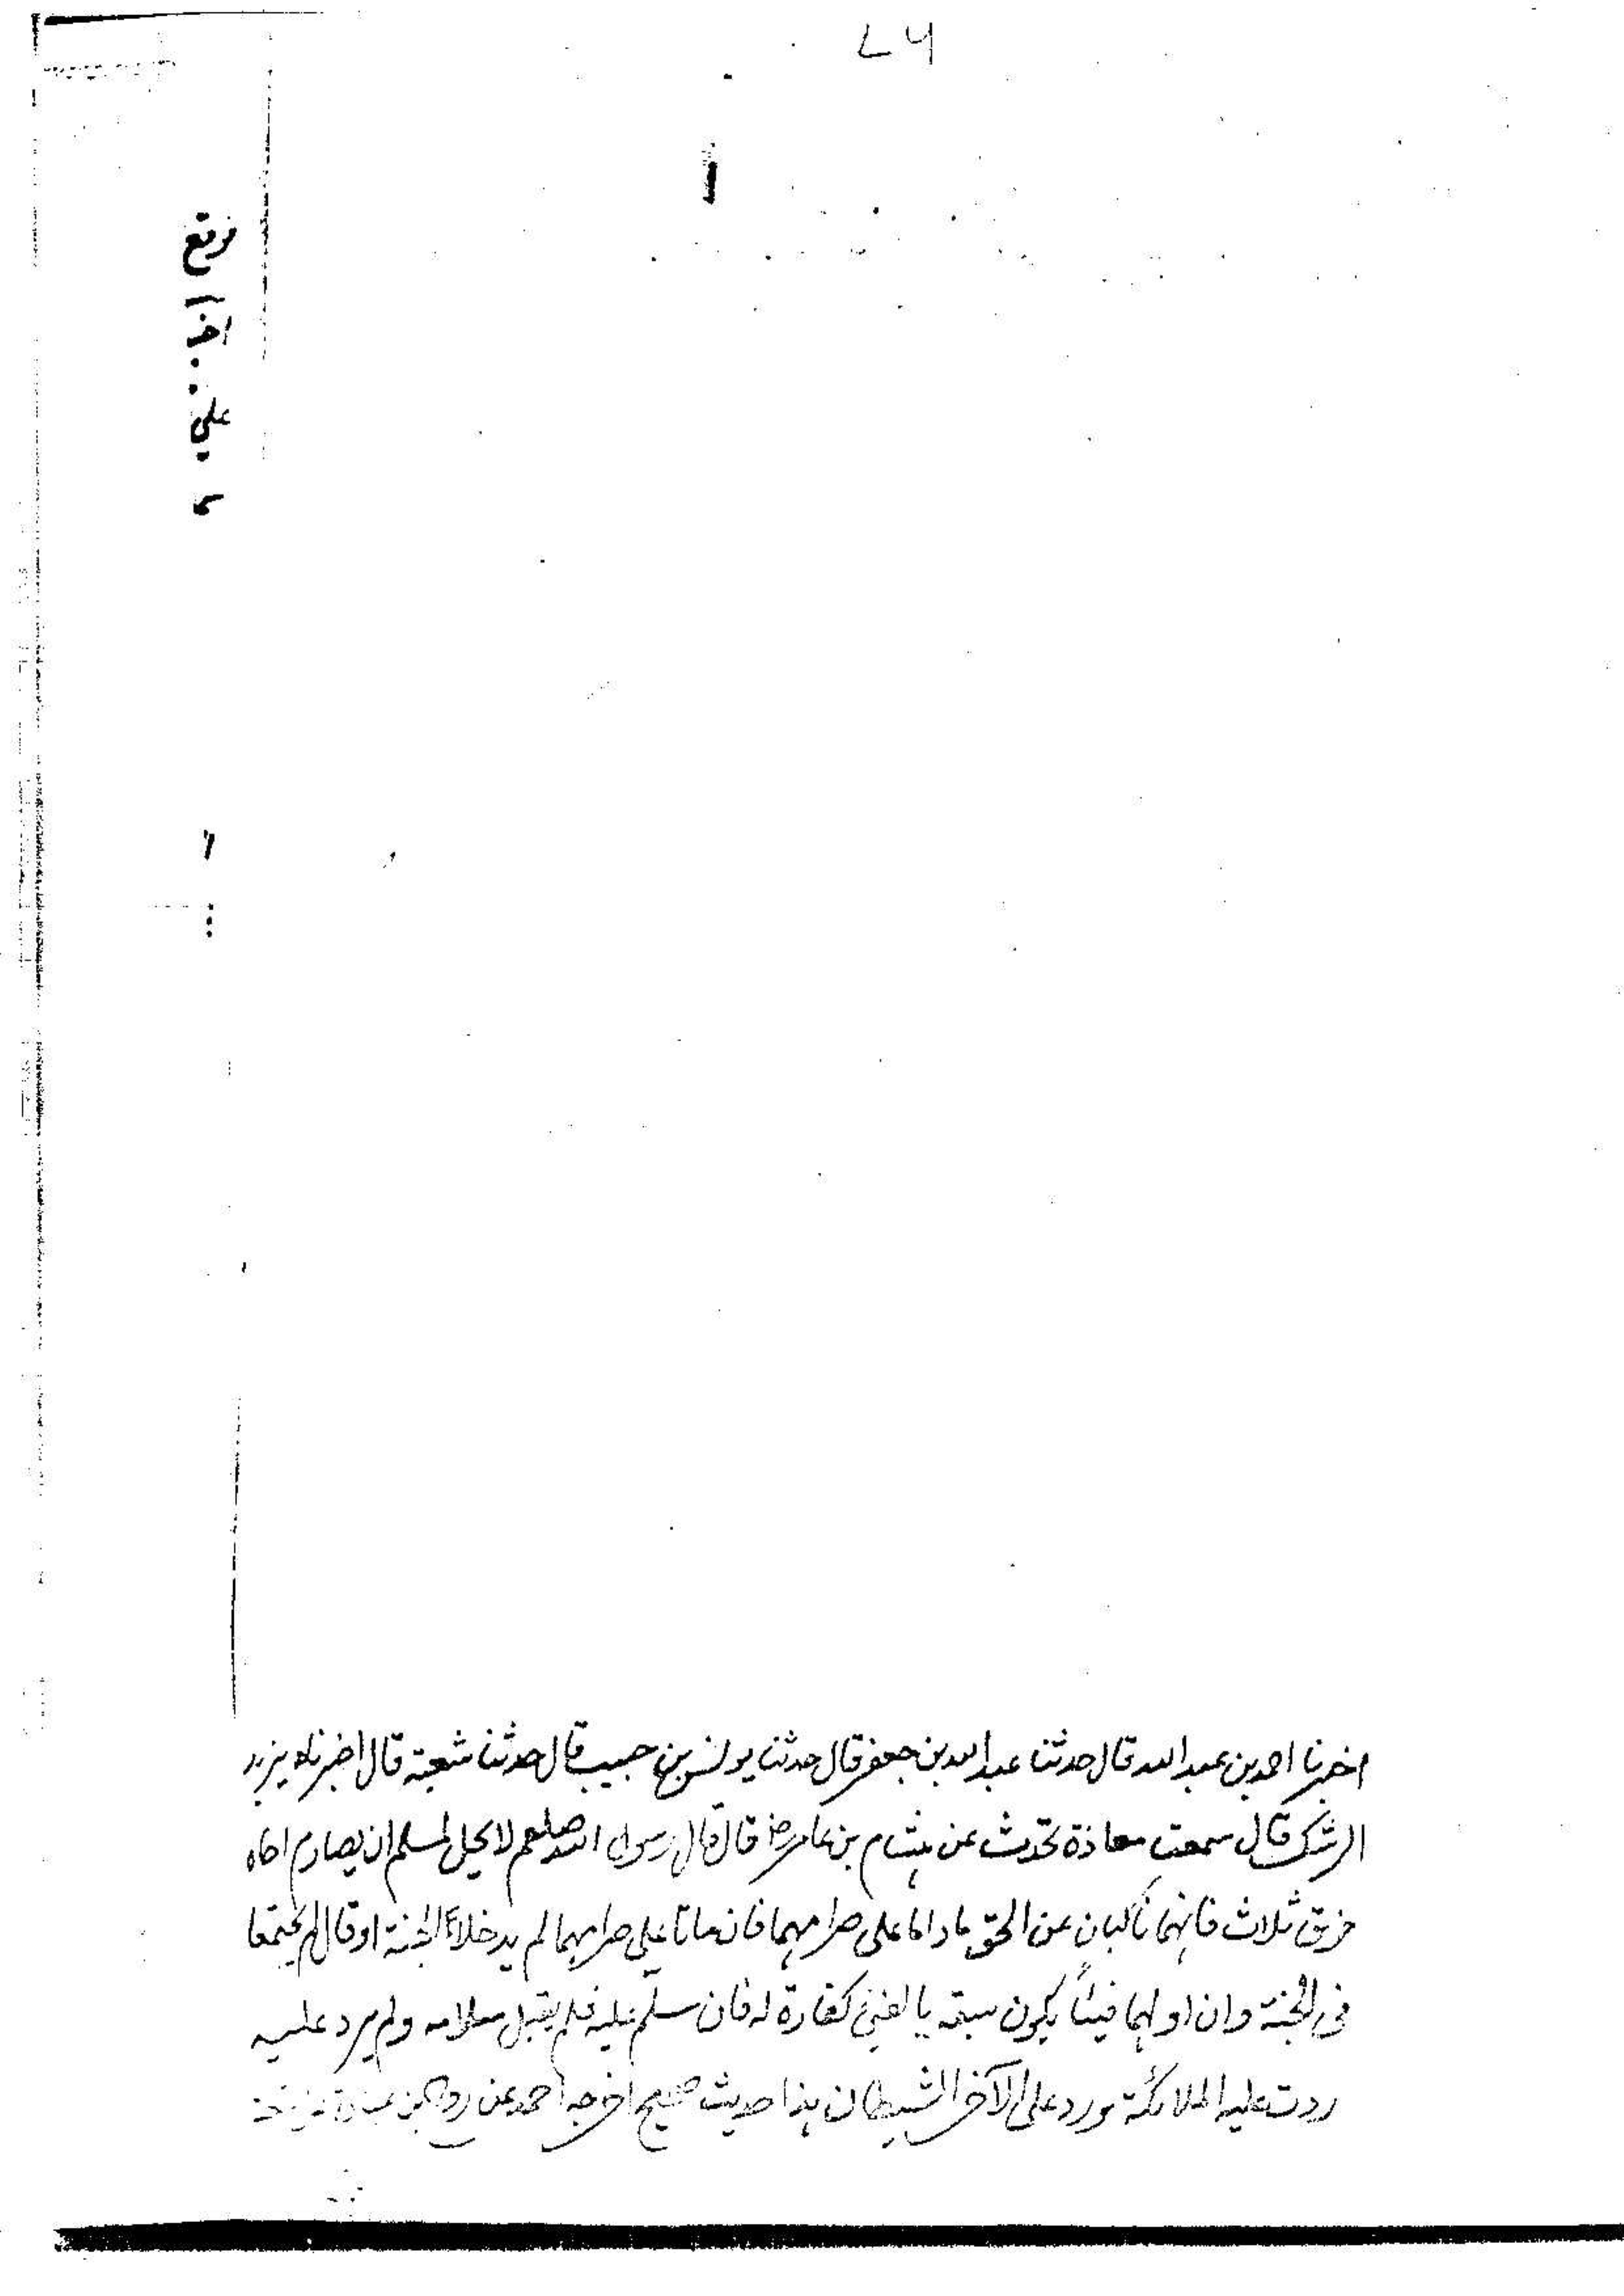 اخبرنا احمد بن عبد الله قال حدثنا عبد الله بن جعفر قال حدثنا يونس بن حبيب قال حدثنا شعبة قال اخبرناه يزيد
الرشك قال سمعت معاذة تحدث عن هشام بن عامر رض قال قال رسول الله صلعم لا يحل لمسلم ان يصارم اخاه
فوق ثلاث فانهما ناكبان عن الحق ما داما على صرامهما فان ماتا على صرامهما لم يدخلا الجنة او قال لم يجتمعا
فى الجنة وان اولهما فيئاً يكون سبقه بالفئ كفارة له فان سلم عليه فلم يقبل سلامه ولم يرد عليه
ردت عليه الملائكة ورد على الآخر الشيطان هذا حديث صحيح اخرجه احمد عن روح بن عبادة
علي